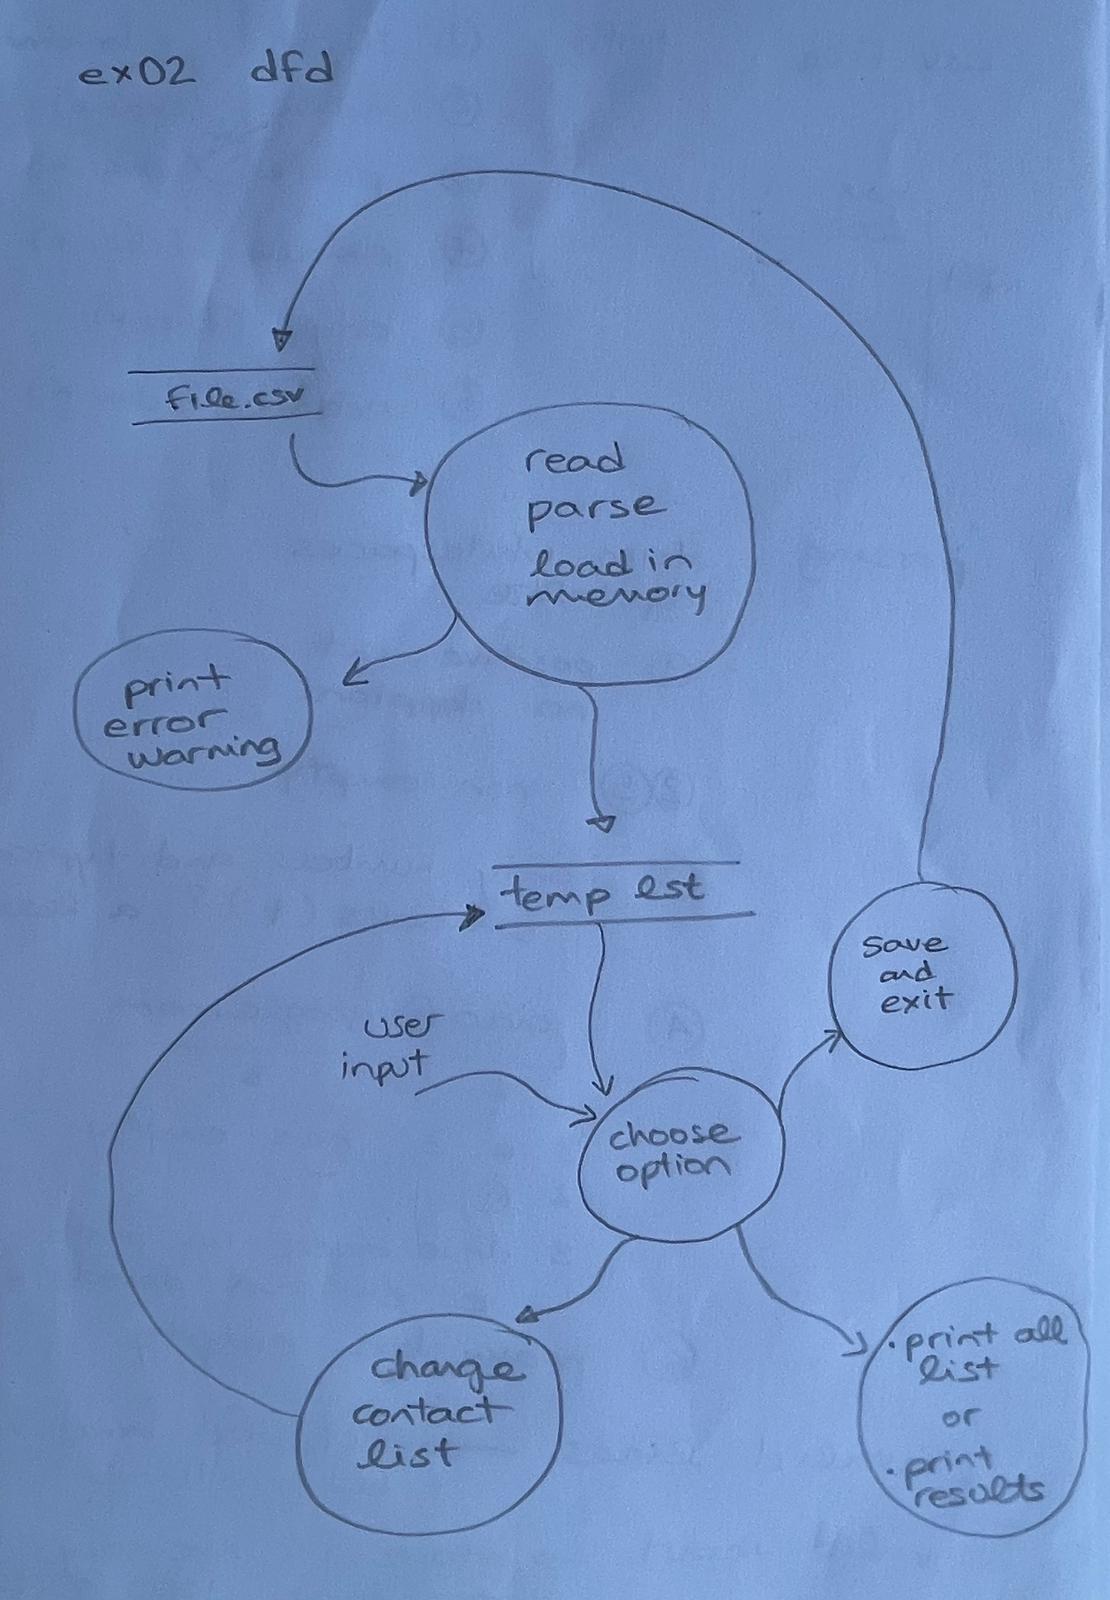 ex02 dfd
file.csv
read
parse
load in
memory
print
error
warning
temp lst
save
and
exit
user
input
choose
option
change
contact
list
. print all
list
or
. print
results